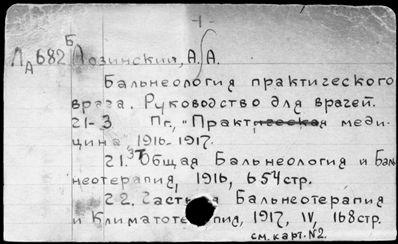 -1-
Л682 Б Лозинский, А. А.
А
Бальнеология практического
врача. Руководство для врачей.
21-3 Пг., "Практическая меди-
цина", 1916-1917.
21. Общая Бальнеология и Баль
неотерапия, 1916, 654стр.
22. Частная Бальнеотерапия
и Климатотерапия, 1917, IV, 168стр.
см. карт. №2.